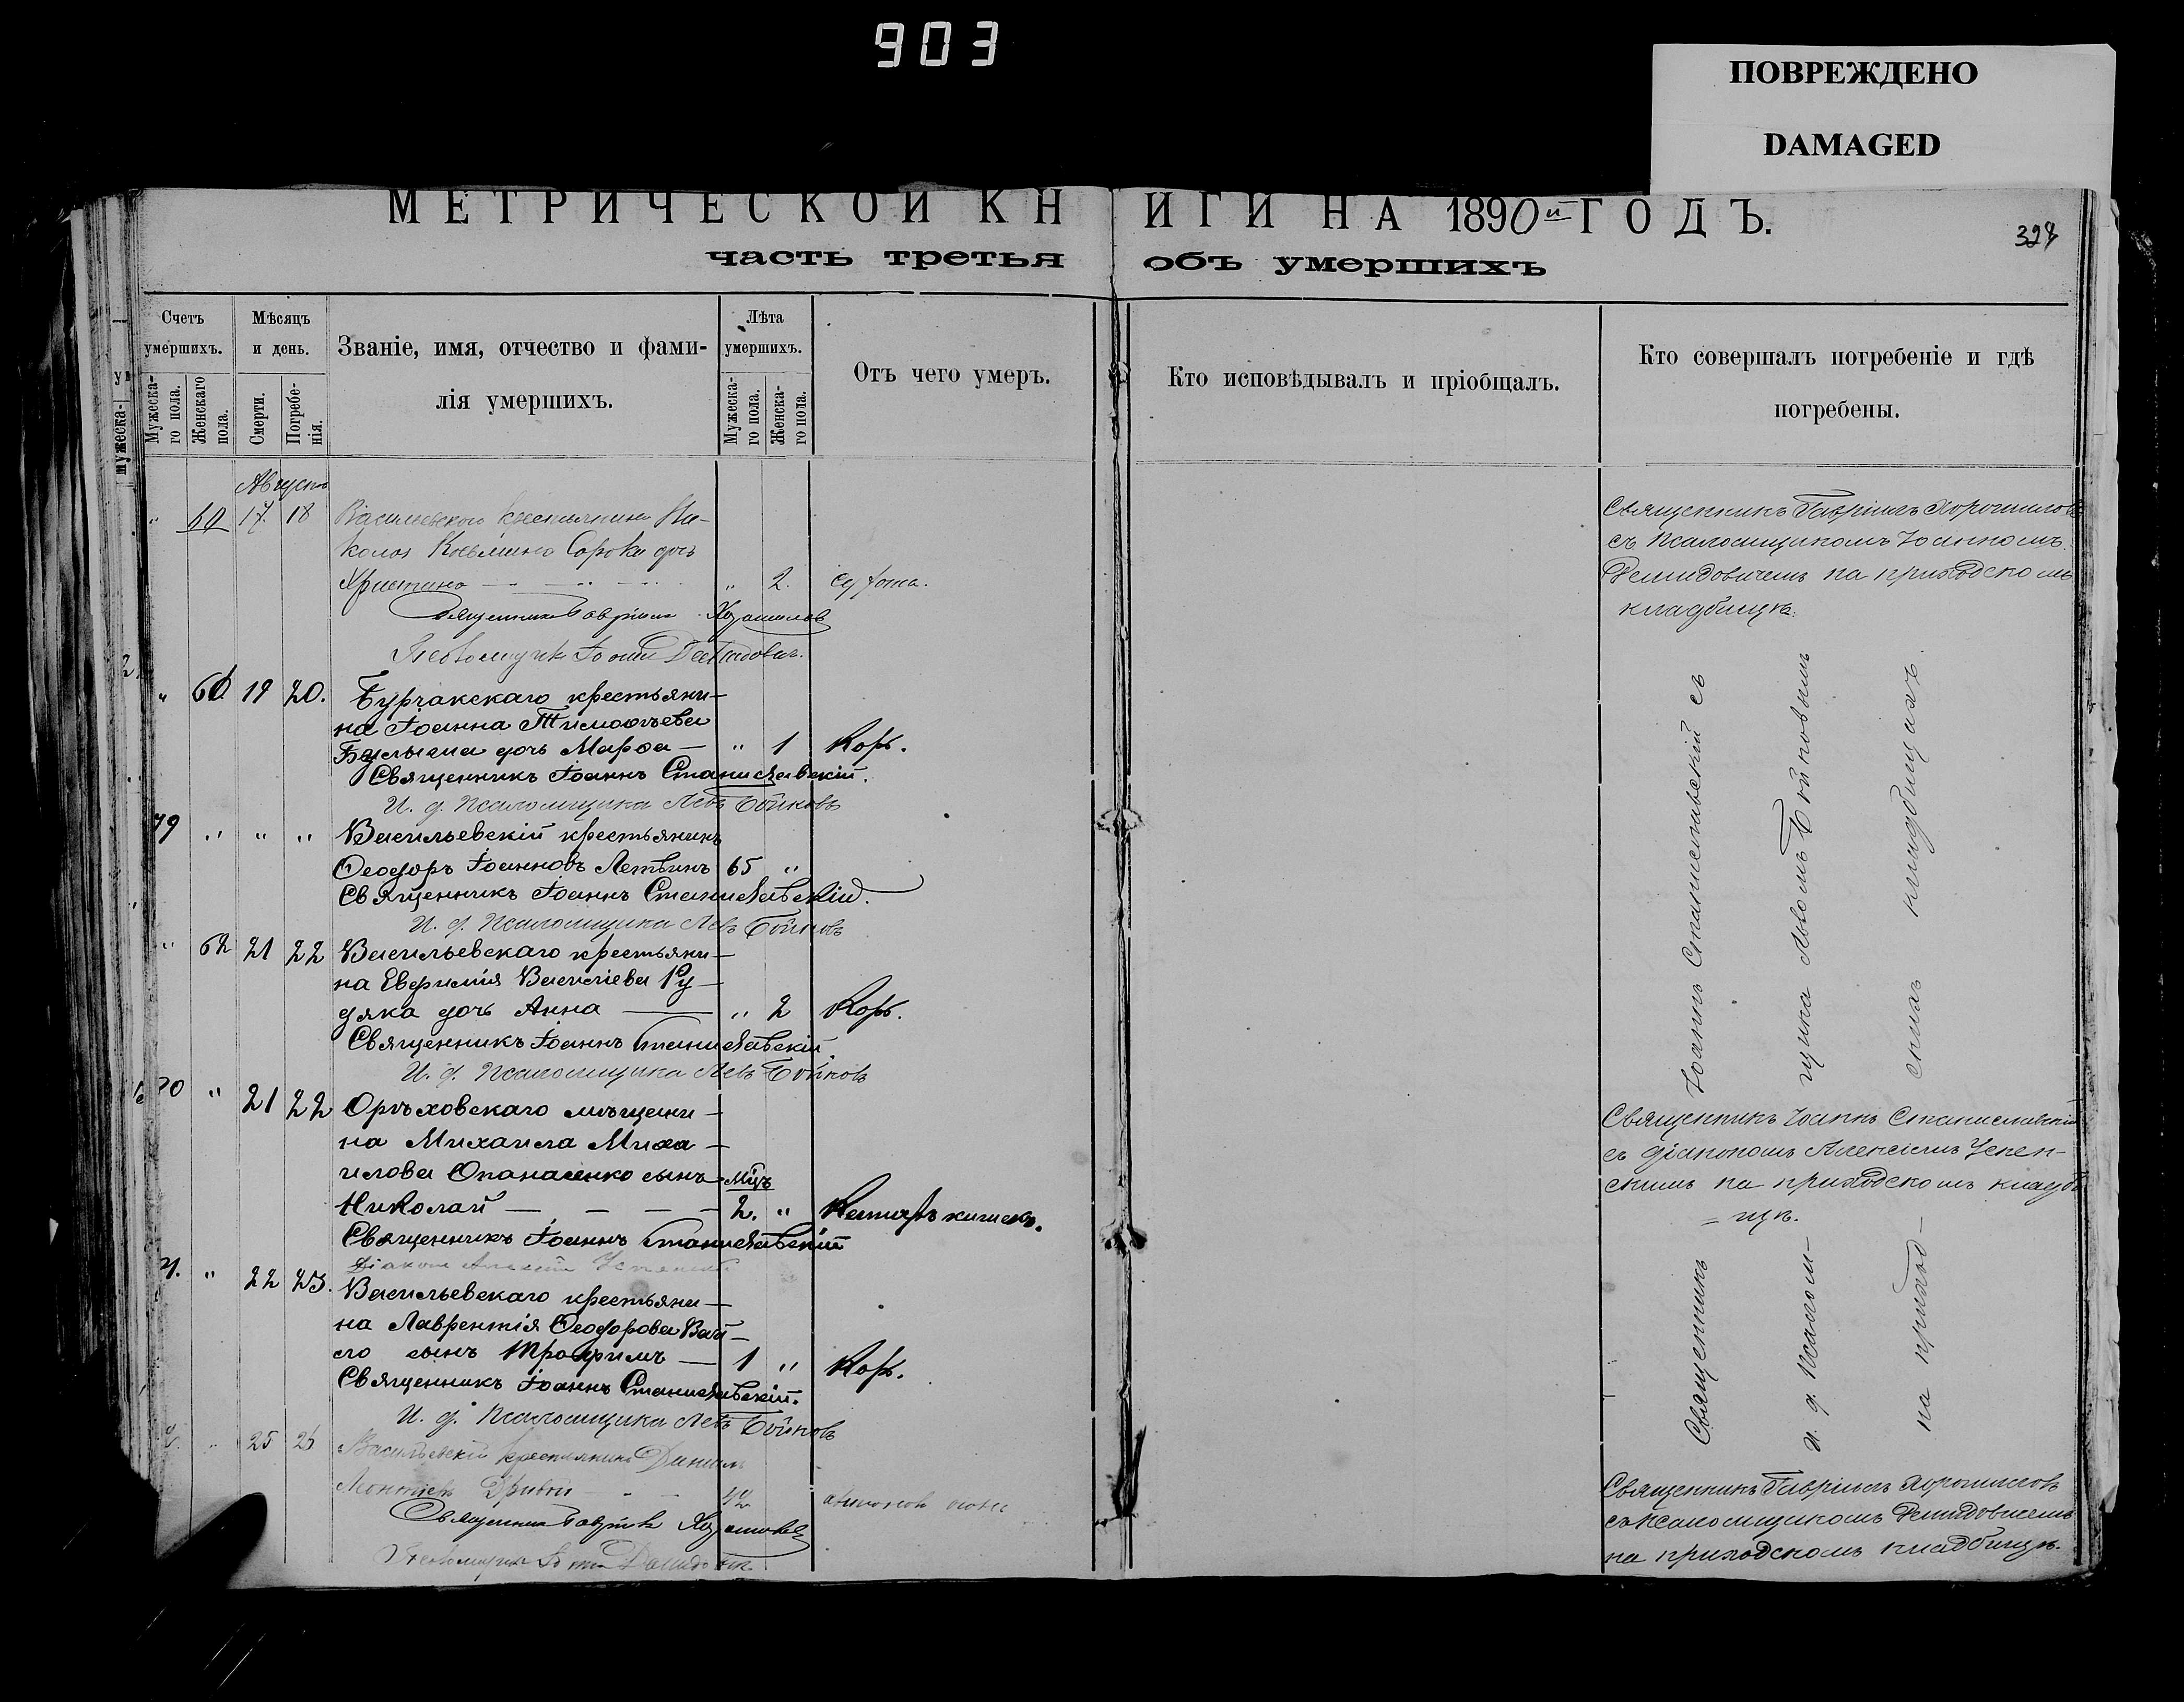 903
ПОВРЕЖДЕНО
DAMAGED
МЕТРИЧЕСКОЙ КНИГИ НА 1890й ГОДЪ.
часть третья объ умершихъ
Счетъ умершихъ.
Мужеска-го пола.
Женскаго пола.
Мѣсяцъ и день.
Смерти.
Погребе-нія.
Званіе, имя, отчество и фами-
лія умершихъ.
Лѣта умершихъ.
Мужеска-го пола.
Женска-го пола.
Отъ чего умеръ.
Кто исповѣдывалъ и пріобщалъ.
Кто совершалъ погребеніе и гдѣ
погребены.
Августъ
" 60 17. 18 Васильевского крестьянина Ни-
колая Козьмина Сороки дочь
Христина " 2.
Священникъ Гавріилъ Хорошиловъ
Псаломщикъ Іоаннъ Демидовичъ.
Священникъ Гавріилъ Хорошиловъ
съ Псаломщикомъ Іоанномъ
Демидовичемъ на приходскомъ
кладбищѣ.
" 61 19 20. Бурчакскаго крестьяни-
на Іоанна Тимоѳѣева
дочь Марѳа — " 1 Корь.
Священникъ Іоаннъ Станиславскій.
И. д. Псаломщика Левъ Бойковъ
79 " " " Васильевскій крестьянинъ
Ѳеодоръ Іоанновъ Летвинъ 65 "
Священникъ Іоаннъ Станиславскій.
И. д. Псаломщика Левъ Бойковъ
" 62 21 22 Васильевскаго крестьяни-
на Евфимія Василіева Ру-
дяка дочь Анна — " 2 Корь.
Священникъ Іоаннъ Станиславскій.
И. д. Псаломщика Левъ Бойковъ
" 21 22 Орѣховскаго мѣщани-
на Михаила Миха-
илова Опанасенко сынъ Мцъ
Николай — 2. " Катаръ кишекъ.
Священникъ Іоаннъ Станиславскій
Діаконъ Алексій Успенскій
Священникъ Іоаннъ Станиславскій
съ діакономъ Алексіемъ Успен-
скимъ на приходскомъ кладб
= щѣ.
" 22 23. Васильевскаго крестьяни-
на Лаврентія Ѳеодорова
сынъ Трофимъ — 1 " Корь.
Священникъ Іоаннъ Станиславскій.
И. д. Псаломщика Левъ Бойковъ
Священникъ Іоаннъ Станиславскій съ
и. д. Псаломщика Львомъ Бойковымъ
на приходскихъ кладбищахъ.
25 26 Васильевскій крестьянинъ Даниилъ
42
Священникъ Гавріилъ Хорошиловъ
Псаломщикъ Іоаннъ Демидовичъ
Священникъ Гавріилъ Хорошиловъ
съ Псаломщикомъ Демидовичемъ
на приходскомъ кладбищѣ.